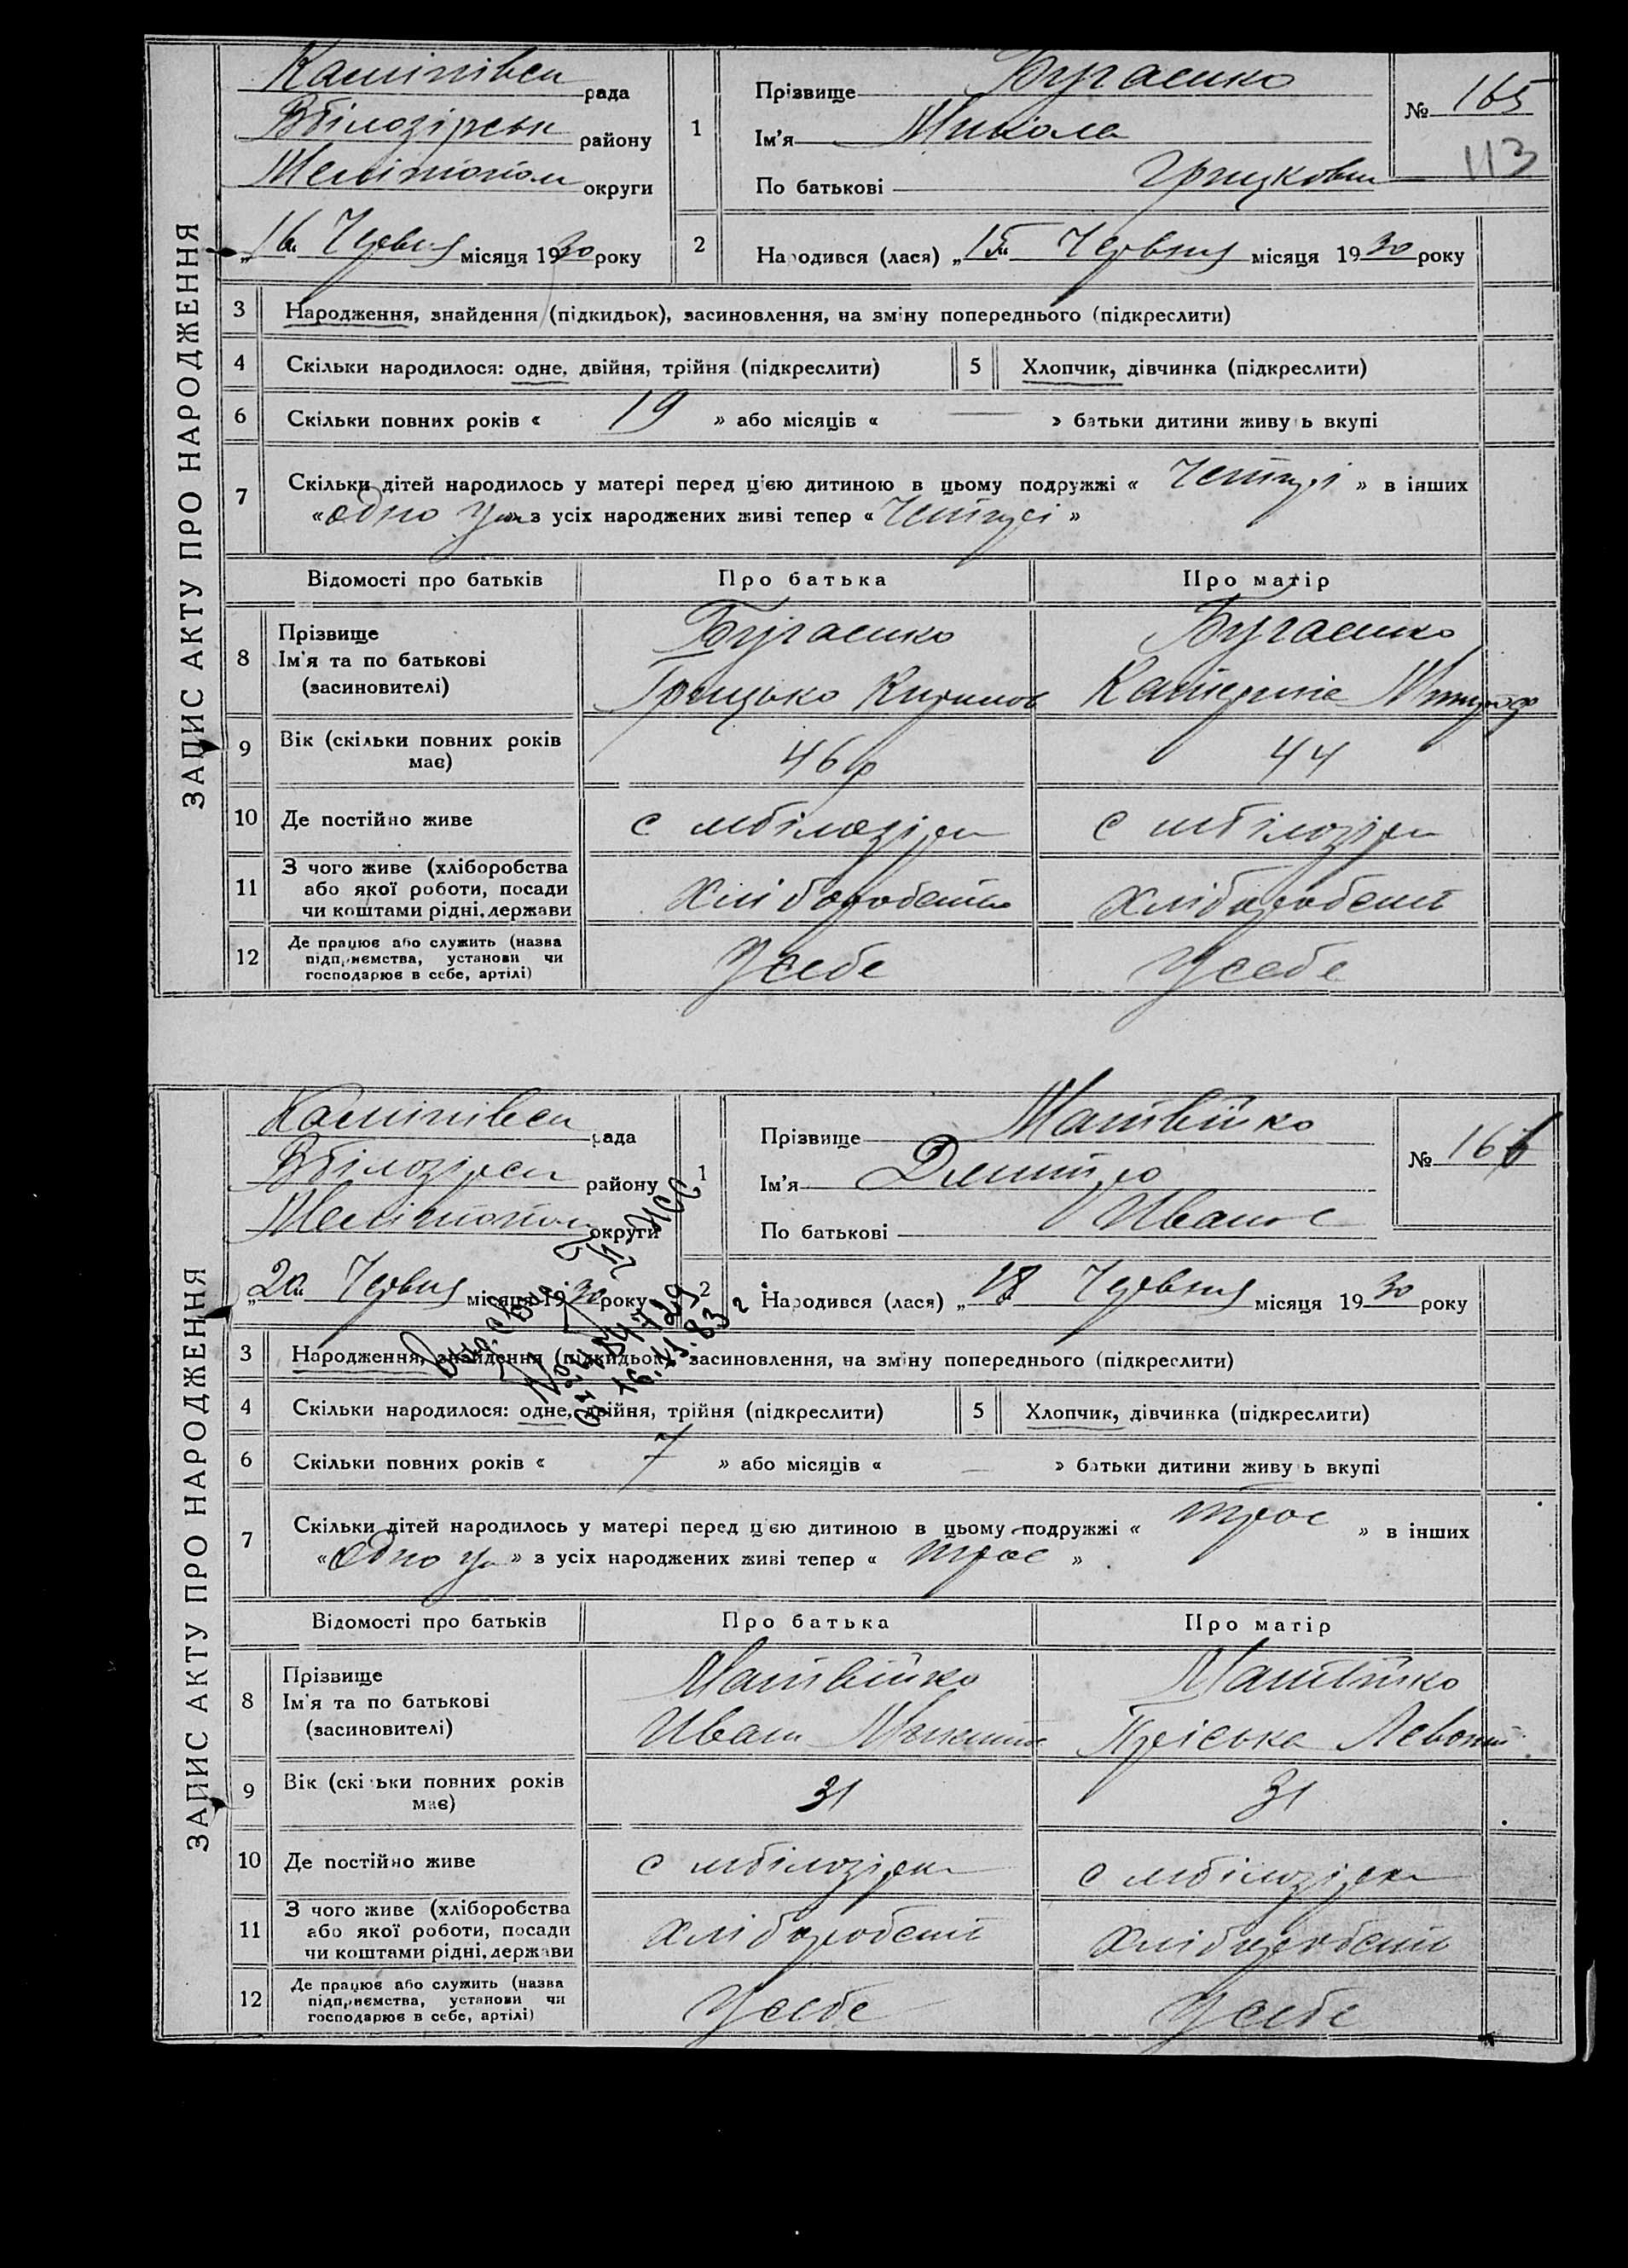 ЗАПИС АКТУ ПРО НАРОДЖЕННЯ
рада
Вбілозірськ району
Мелітопол округи
„16“ Червня місяця 1930 року
1
Прізвище Бугаенко
Ім'я Микола
По батькові Грицькович
№ 165
113
2 Народився (лася) „15“ Червня місяця 1930 року
3 Народження, знайдення (підкидьок), засиновлення, на зміну попереднього (підкреслити)
4 Скільки народилося: одне, двійня, трійня (підкреслити) 5 Хлопчик, дівчинка (підкреслити)
6 Скільки повних років « 19 » або місяців « — » батьки дитини живуть вкупі
7 Скільки дітей народилось у матері перед цією дитиною в цьому подружжі « » в інших
« одно » з усіх народжених живі тепер « »
Відомості про батьків Про батька Про матір
8 Прізвище
Ім'я та по батькові
(засиновителі)
Бугаенко
Грицько Кирилов
Бугаенко
Катерина
9 Вік (скільки повних років
має)
46 р
44
10 Де постійно живе с мбілозірка с мбілозірка
11 З чого живе (хліборобства
або якої роботи, посади
чи коштами рідні, держави
хліборобство
хліборобств
12 Де працює або служить (назва
підприємства, установи чи
господарює в себе, артілі)
У себе
У себе
ЗАПИС АКТУ ПРО НАРОДЖЕННЯ
рада
Вбілозірськ району
Мелітопол округи
„20“ Червня місяця 1930 року
1
Прізвище Матвійко
Ім'я Дмитро
По батькові Иванов
№ 166
2 Народився (лася) „18 Червня місяця 1930 року
№ 454729
16.11.83 г
3 Народження, знайдення (підкидьок), засиновлення, на зміну попереднього (підкреслити)
4 Скільки народилося: одне, двійня, трійня (підкреслити) 5 Хлопчик, дівчинка (підкреслити)
6 Скільки повних років « 7 » або місяців « — » батьки дитини живуть вкупі
7 Скільки дітей народилось у матері перед цією дитиною в цьому подружжі « трое » в інших
« одно » з усіх народжених живі тепер « трое »
Відомості про батьків Про батька Про матір
8 Прізвище
Ім'я та по батькові
(засиновителі)
Матвійко
Иван
Матвійко
Пріська Левонт
9 Вік (скільки повних років
має)
31
31
10 Де постійно живе с мбілозірка с мбілозірка
11 З чого живе (хліборобства
або якої роботи, посади
чи коштами рідні, держави
хліборобств
хліборобств
12 Де працює або служить (назва
підприємства, установи чи
господарює в себе, артілі)
У себе
У себе